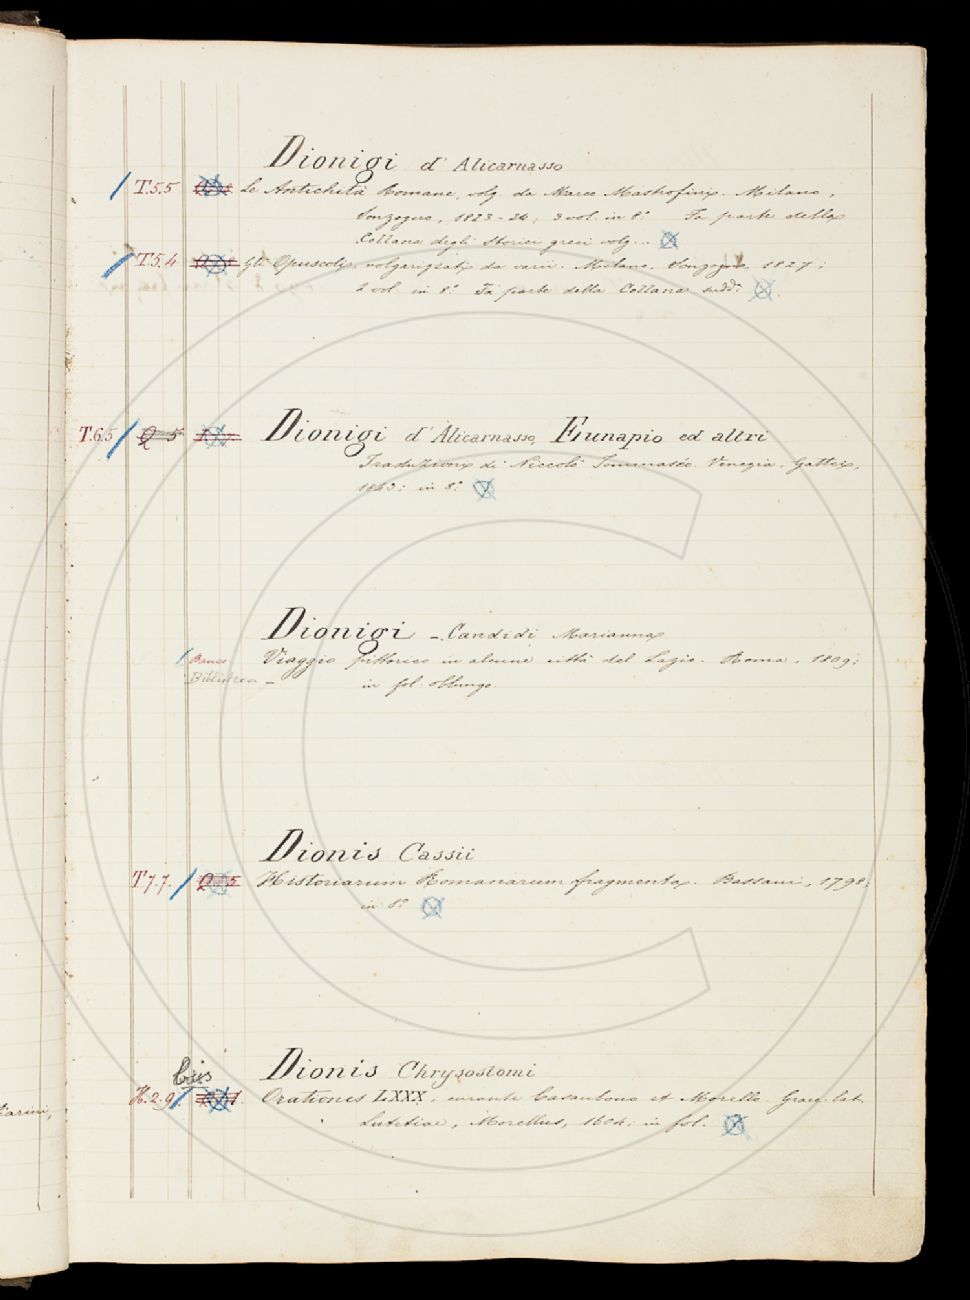 Dionigi d'Alicarnasso
T.5.5 Le Antichità Romane, volg. da Marco Mastrofini. Milano,
Sonzogno, 1823-24; 3 vol. in 8.° Fa parte della
Collana degli storici greci volg...
T.5.4 Gli Opuscoli, volgarizzati da varii. Milano. Sonzogno. 1827;
2 vol. in 8.° Fa parte della Collana sudd.ª
T.6.5 Q 5 Dionigi d'Alicarnasso, Eunapio ed altri
Traduzione di Niccolò Tommaséo. Venezia. Gattei,
in 8.°
Dionigi - Candidi Marianna
Banco Viaggio pittorico in alcune città del Lazio. Roma, 1809;
Biblioteca - in fol. oblungo.
Dionis Cassii
T 7.7. Q 5 Historiarum Romanarum fragmenta. Bassani, 1798.
in 8.°
bis Dionis Chrysostomi
H.2.9 Orationes LXXX, curante Casaubono et Morello. Graec. lat.
Lutetiae, Morellus, 1604; in fol.